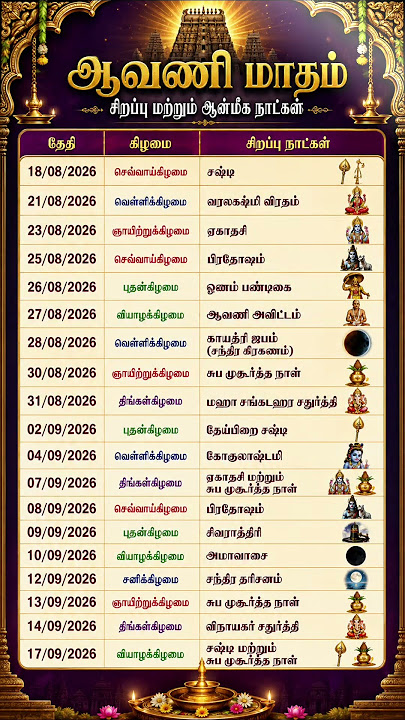 ஆவணி மாதம்
சிறப்பு மற்றும் ஆன்மீக நாட்கள்
தேதி கிழமை சிறப்பு நாட்கள்
18/08/2026 செவ்வாய்கிழமை சஷ்டி
21/08/2026 வெள்ளிக்கிழமை வரலகஷ்மி விரதம்
23/08/2026 ஞாயிற்றுக்கிழமை ஏகாதசி
25/08/2026 செவ்வாய்கிழமை பிரதோஷம்
26/08/2026 புதன்கிழமை ஓணம் பண்டிகை
27/08/2026 வியாழக்கிழமை ஆவணி அவிட்டம்
28/08/2026 வெள்ளிக்கிழமை காயத்ரி ஜபம்
(சந்திர கிரகணம்)
30/08/2026 ஞாயிற்றுக்கிழமை சுப முகூர்த்த நாள்
31/08/2026 திங்கள்கிழமை மஹா சங்கடஹர சதுர்த்தி
02/09/2026 புதன்கிழமை தேய்பிறை சஷ்டி
04/09/2026 வெள்ளிக்கிழமை கோகுலாஷ்டமி
07/09/2026 திங்கள்கிழமை ஏகாதசி மற்றும்
சுப முகூர்த்த நாள்
08/09/2026 செவ்வாய்கிழமை பிரதோஷம்
09/09/2026 புதன்கிழமை சிவராத்திரி
10/09/2026 வியாழக்கிழமை அமாவாசை
12/09/2026 சனிக்கிழமை சந்திர தரிசனம்
13/09/2026 ஞாயிற்றுக்கிழமை சுப முகூர்த்த நாள்
14/09/2026 திங்கள்கிழமை விநாயகர் சதுர்த்தி
17/09/2026 வியாழக்கிழமை சஷ்டி மற்றும்
சுப முகூர்த்த நாள்